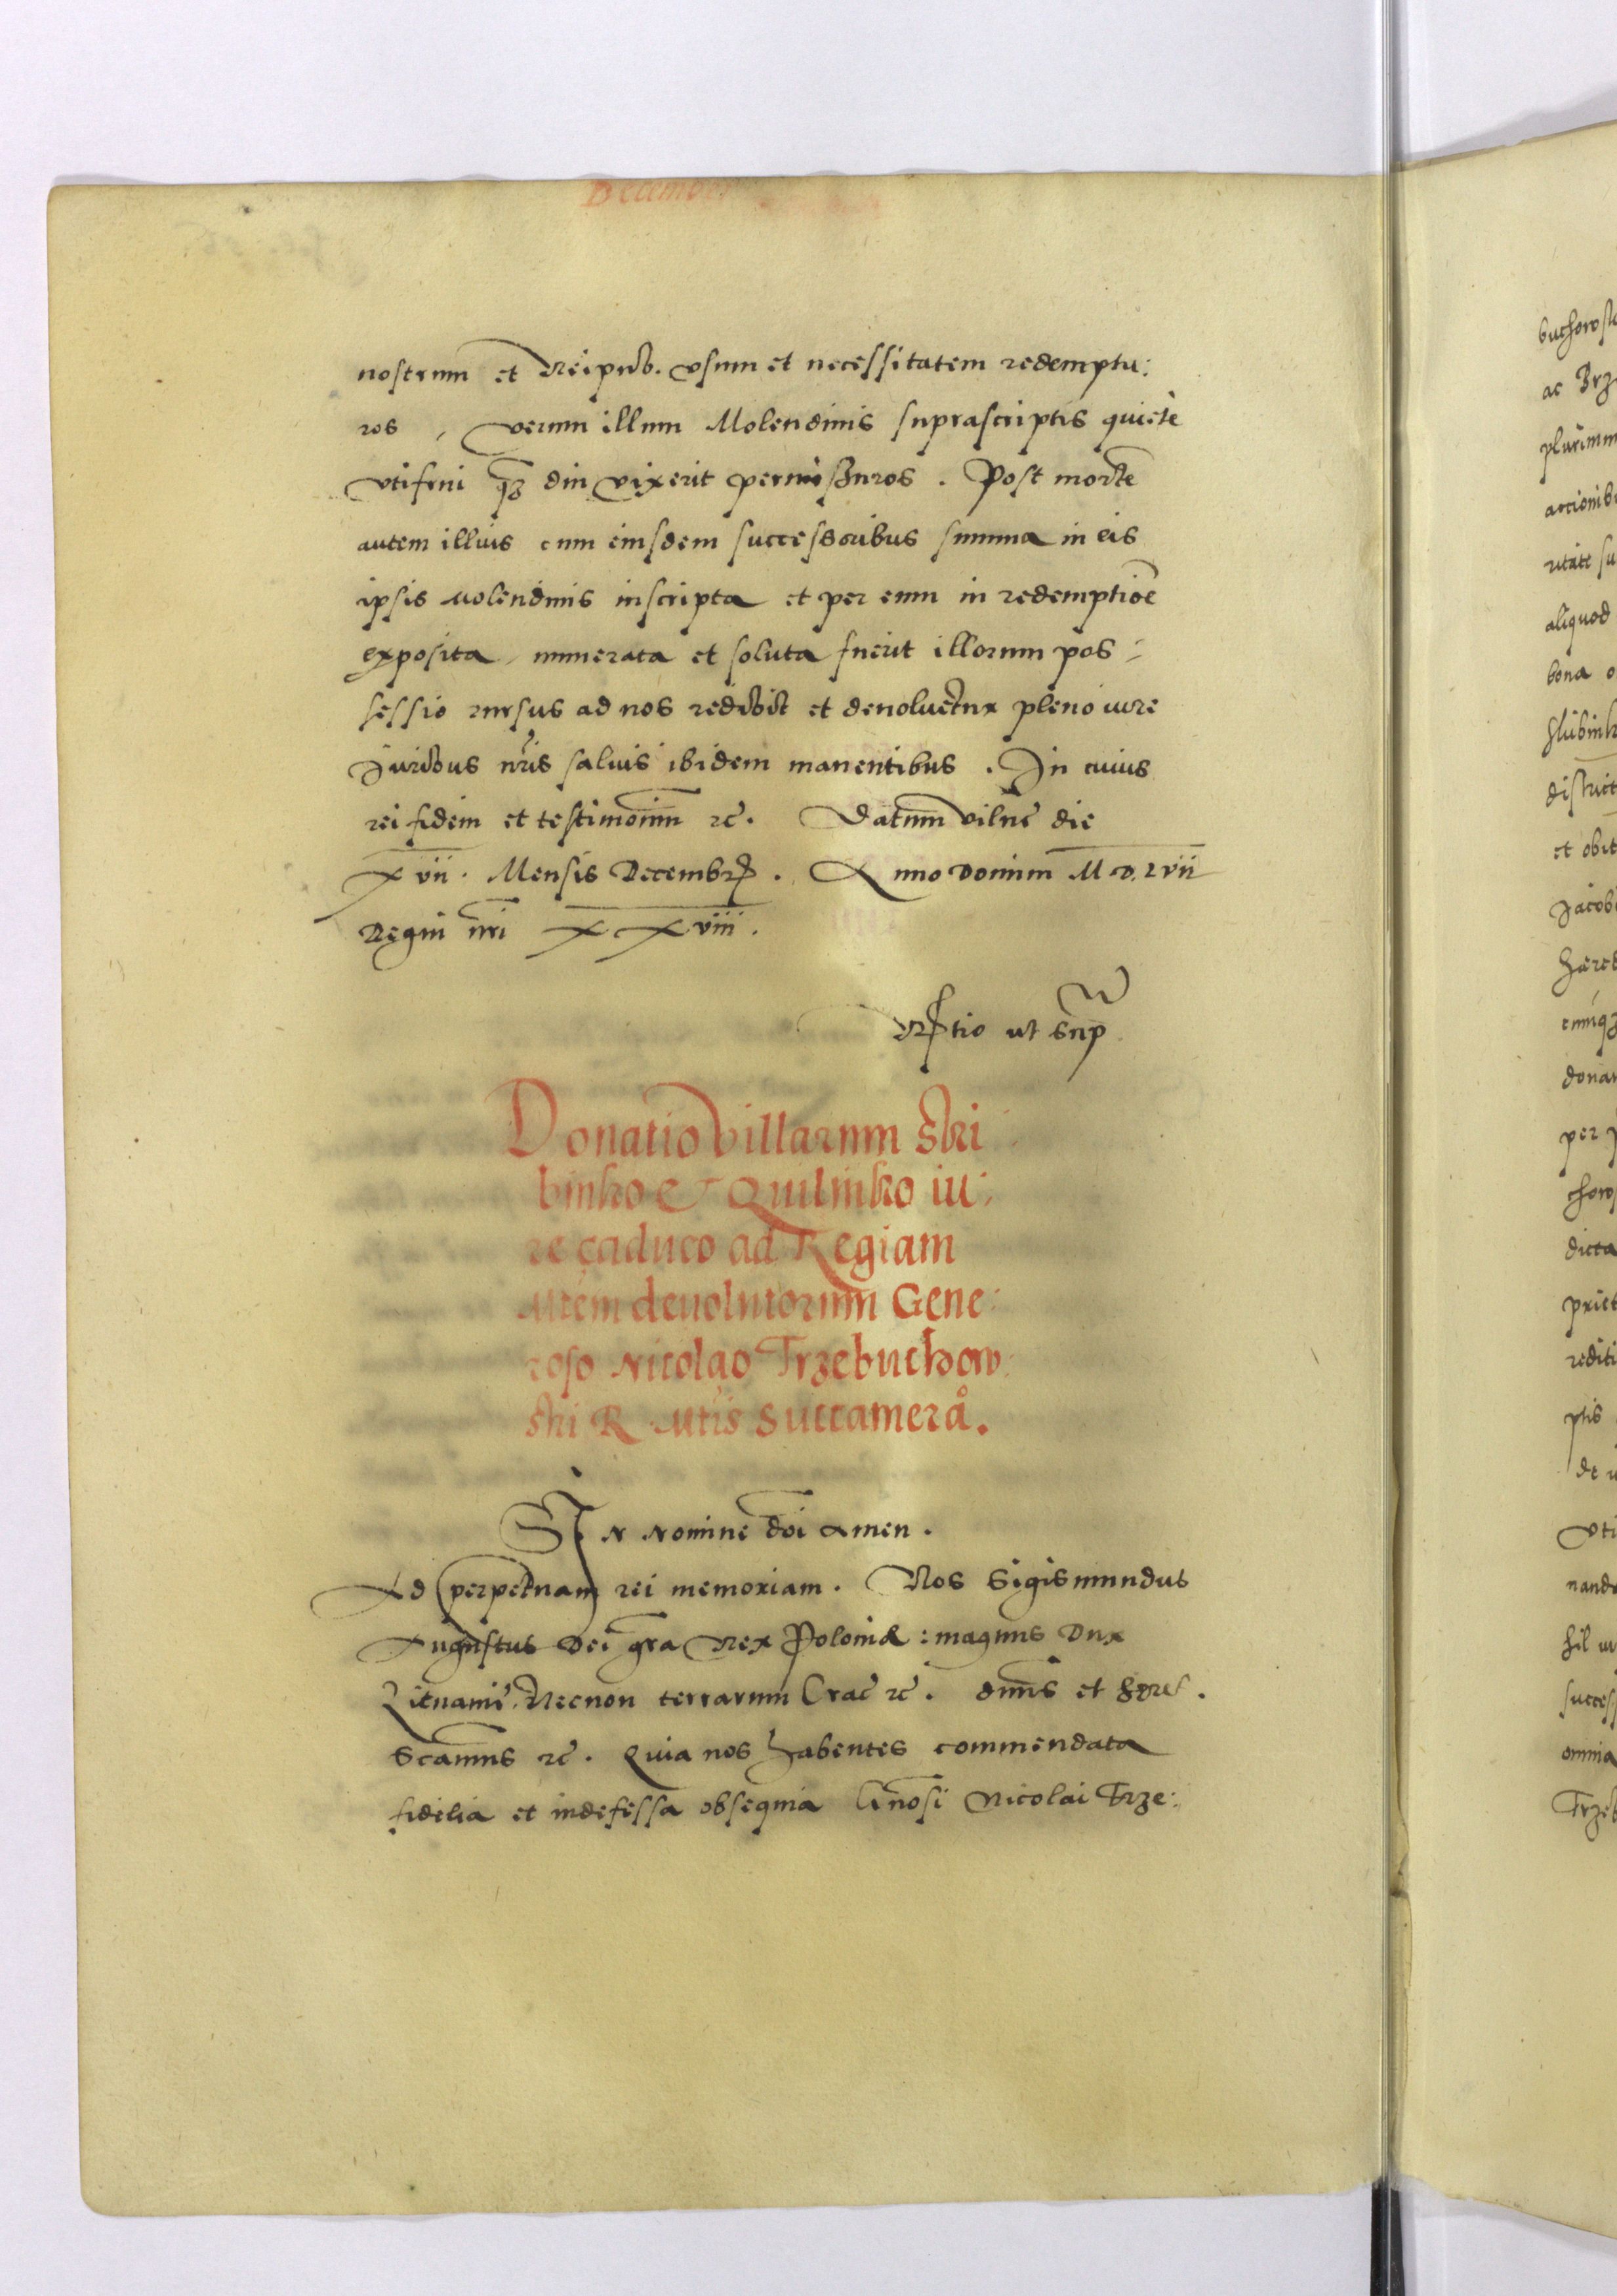 December
nostrum et Reipub. vsum et necessitatem redemptu:
ros, verum illum Molendinis suprascriptis quiete
vtifrui qz diu vixerit permissuros. Post morte
autem illius cum eiusdem successoribus summa in eis
ipsis molendinis inscripta et per eum in redemptioe
exposita, numerata et soluta fuerit illorum pos:
sessio rursus ad nos redibit et deuoluetur pleno iure
Juribus nris saluis ibidem manentibus. In cuius
rei fidem et testimonium rc. Datum vilne die
xvii. Mensis Decembr. Anno Domini M D. Lvii
Regni nri xxviii.
ut sup
Donatio villarum
binko & Quilinko iu:
re caduco ad Regiam
Mtem deuolutorum Gene:
roso Nicolao Trzebuchow:
ski R Mtis Succamera.
In Nomine doi Amen.
Ad perpetuam rei memoriam. Nos Sigismundus
Augustus Dei gra Rex Poloniæ: magnus Dux
Lituanie. Necnon terrarum Crac rc. dnns et heres.
rc. Quia nos habentes commendata
fidelia et indefessa obsequia Gnosi Nicolai Trze:
buchows
ac Brz
plurimu
actionib
ritate su
aliquod
bona o
Slubink
district
et obit
Jacob
Hæred
cumqz
donan
per
choro
dicta
priet
rediti
ptis
de
Vti
nand
hil
succes
omnia
Trzeb